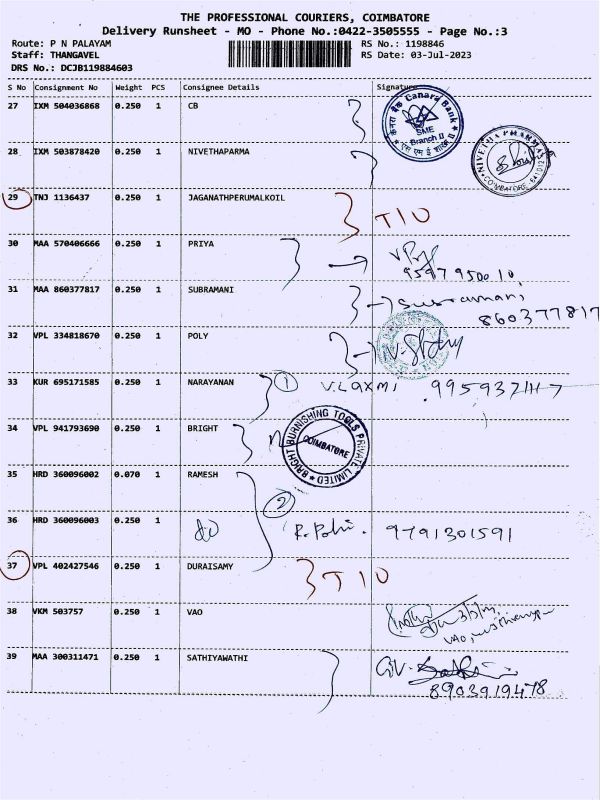 THE PROFESSIONAL COURIERS, COIMBATORE
Delivery Runsheet - MO - Phone No.:0422-3505555 - Page No.:3
Route: P N PALAYAM
RS No.: 1198846
Staff: THANGAVEL
RS Date: 03-Jul-2023
DRS No.: DCJB119884603
S No Consignment No Weight PCS Consignee Details Signature
27 IXM 504036868 0.250 1 CB
केनरा बैंक Canara Bank
SME
Branch II
28 IXM 503878420 0.250 1 NIVETHAPARMA
NIVETHA PHARMA
COIMBATORE
29 TNJ 1136437 0.250 1 JAGANATHPERUMALKOIL TIO
30 MAA 570406666 0.250 1 PRIYA
9597950010
31 MAA 860377817 0.250 1 SUBRAMANI Subramani
860377817
32 VPL 334818670 0.250 1 POLY
33 KUR 695171585 0.250 1 NARAYANAN 1 V. Laxmi
34 VPL 941793690 0.250 1 BRIGHT
BRIGHT BURNISHING TOOLS PRIVATE LIMITED
COIMBATORE
35 HRD 360096002 0.070 1 RAMESH
2
36 HRD 360096003 0.250 1 do 9791301591
37 VPL 402427546 0.250 1 DURAISAMY TIO
38 VKM 503757 0.250 1 VAO
VAO
39 MAA 300311471 0.250 1 SATHIYAWATHI
8903919478